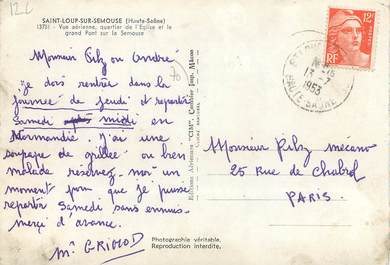 12 c
SAINT-LOUP-SUR-SEMOUSE (Haute-Saône)
13751 - Vue aérienne, quartier de l'Eglise et le
grand Pont sur la Semouse
Monsieur Pilz ou André
je dois rentrer dans la
journée de jeudi et repartir
samedi midi en
Normandie. J'ai une
soupape de grillée ou bien
malade réservez-moi un
moment pour que je puisse
repartir samedi sans ennuis
merci d'avance.
Mr GRIMOD
70
Editions Aériennes "CIM", Combier Imp. Mâcon
Photographie véritable.
Reproduction interdite.
ST LOUP
13-7
1953
HTE-SAONE
12F
RF
Monsieur Pilz mécano
25 Rue de Chabrol
PARIS